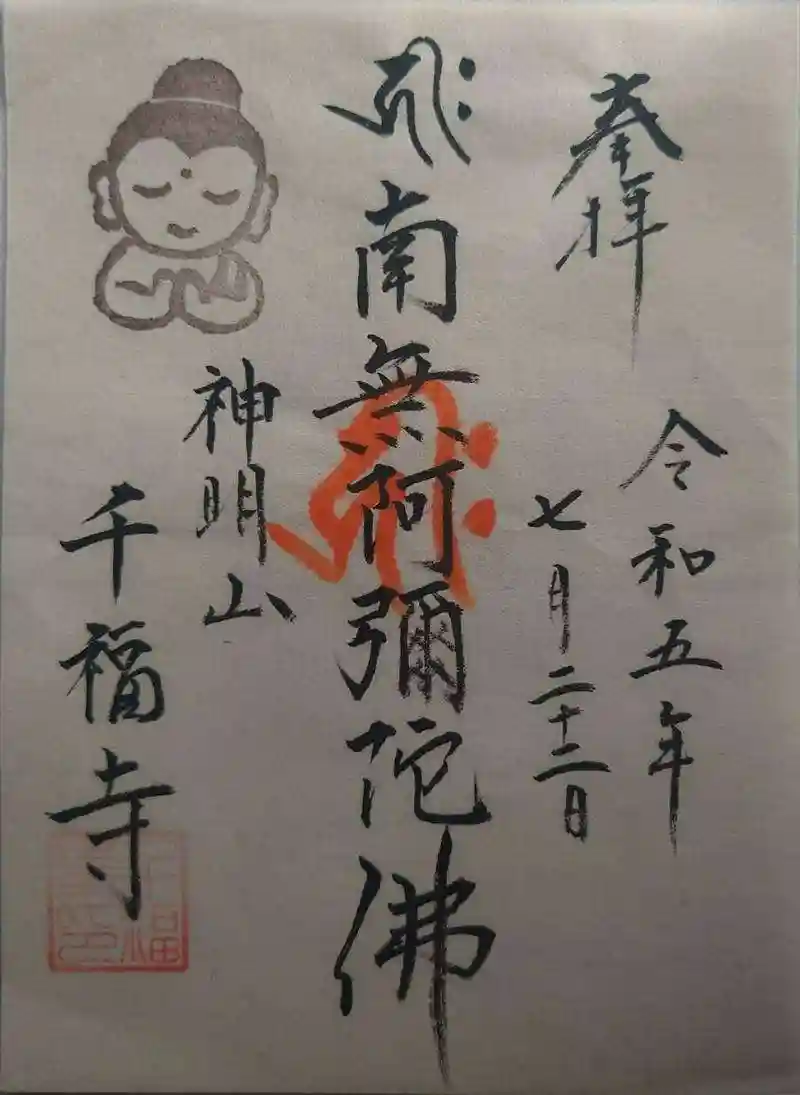 奉拝
令和五年
七月二十二日
𑖮𑖿𑖨𑖱𑖾
南無阿彌陀佛
神明山
千福寺